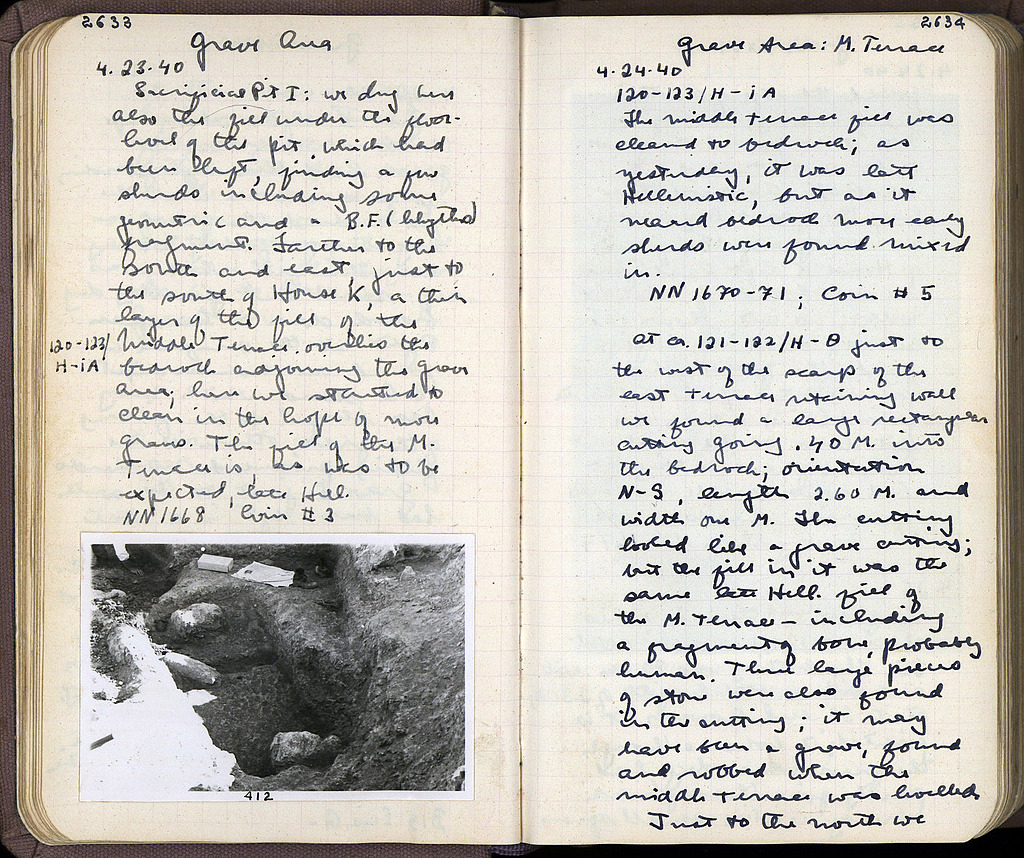 2633
Grave Area
4.23.40
Sacrificial Pit I: we dug here
also the fill under the floor-
level of the pit, which had
been left, finding a few
sherds including some
geometric and a B.F. (lekythos)
fragment. Farther to the
south and east, just to
the south of House K, a thin
layer of the fill of the
120-123/
H-IA
Middle Terrace overlies the
bedrock adjoining the grave
area; here we started to
clean in the hope of more
graves. The fill of the M.
Terrace is, as was to be
expected, late Hell.
NN 1668 Coin #3
412
2634
Grave Area: M. Terrace
4.24.40
120-123/H-IA
The middle terrace fill was
cleaned to bedrock; as
yesterday, it was late
Hellenistic, but as it
neared bedrock more early
sherds were found mixed
in.
NN 1670-71; Coin #5
At ca. 121-122/H-Θ just to
the west of the scarp of the
east terrace retaining wall
we found a large rectangular
cutting going .40 M. into
the bedrock; orientation
N-S, length 2.60 M. and
width one M. The cutting
looked like a grave cutting;
but the fill in it was the
same late Hell. fill of
the M. Terrace - including
a fragment of bone, probably
human. Three large pieces
of stone were also found
in the cutting; it may
have been a grave, found
and robbed when the
middle terrace was levelled.
Just to the north we